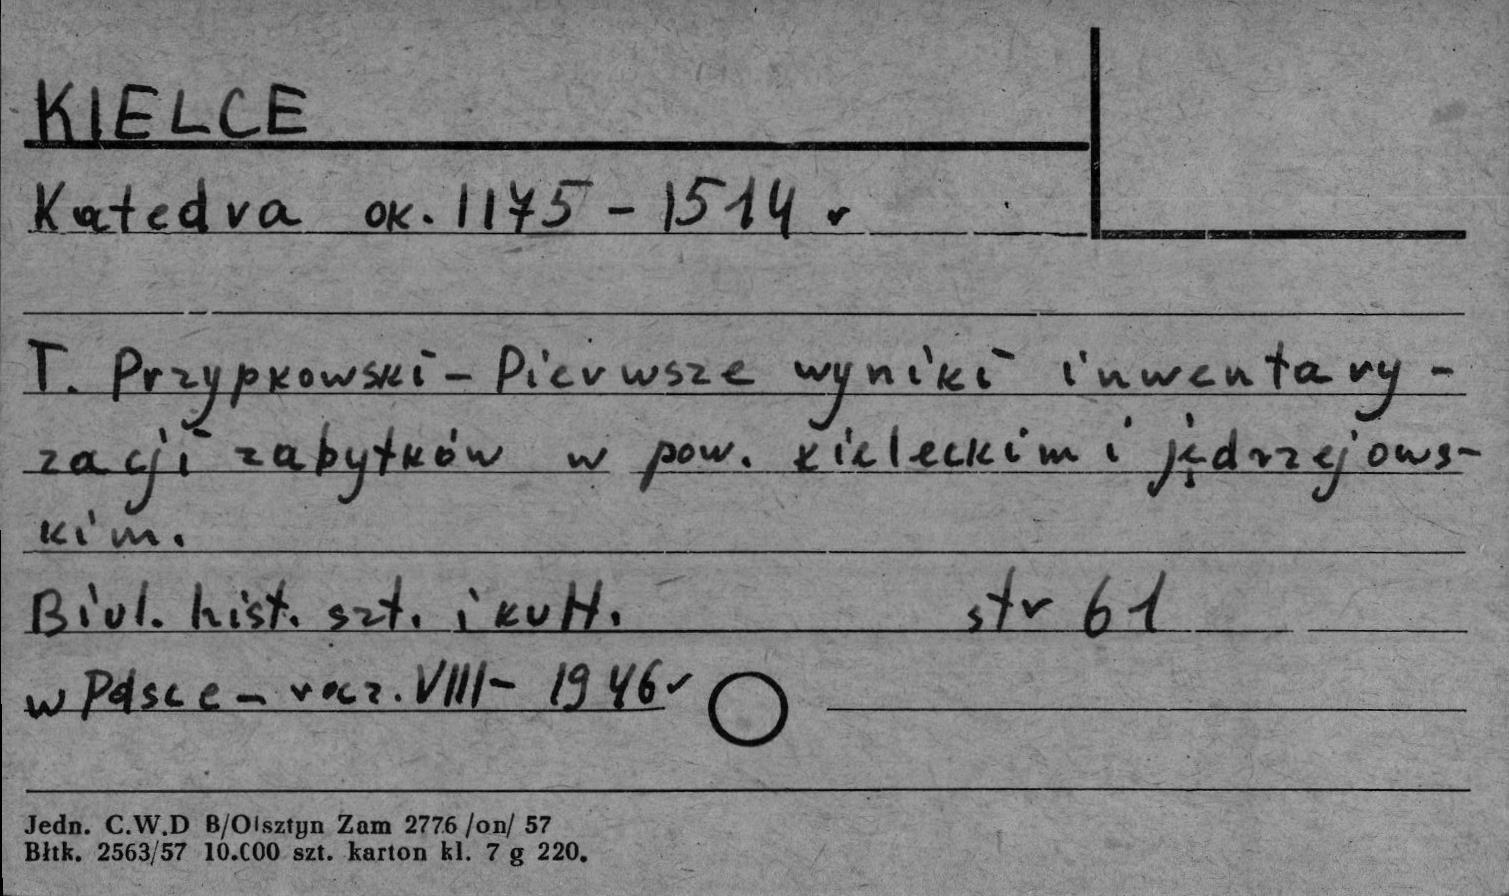 KIELCE
Katedra ok. 1175 - 1514 r
T. Przypkowski - Pierwsze wyniki inwentary-
zacji zabytków w pow. kieleckim i jędrzejows-
kim.
Biul. hist. szt. i kult. str 61
w Polsce - rocz. VIII - 1946 r
Jedn. C.W.D B/Olsztyn Zam 2776 /on/ 57
Błtk. 2563/57 10.000 szt. karton kl. 7 g 220.